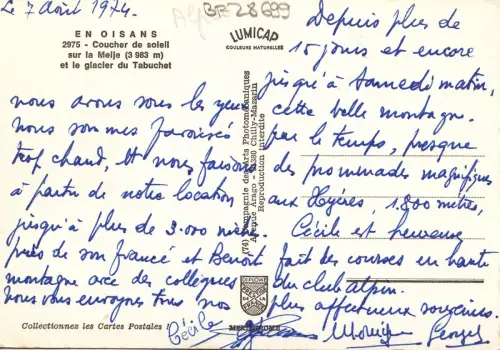 Le 7 Août 1974.
BR28699
EN OISANS
2975 - Coucher de soleil
sur la Meije (3 983 m)
et le glacier du Tabuchet
LUMICAP
COULEURS NATURELLES
Depuis plus de
15 jours et encore
jusqu'à samedi matin,
cette belle montagne.
par le temps, presque
des promenades magnifiques
aux Hyères, 1.800 mètres,
Cécile est heureuse
fait des courses en haute
du club alpin.
plus affectueux souvenirs.
nous avons sous les yeux
nous sommes favorisés
trop chaud, et nous faisons
à partir de notre location
jusqu'à plus de 3.000 mètres.
près de son fiancé et Benoit
montagne avec des collègues
Nous vous envoyons tous nos
(74) Compagnie des Arts Photomécaniques
Avenue Arago - 91380 Chilly-Mazarin
Reproduction interdite
Collectionnez les Cartes Postales
Cécile
Monique Georges